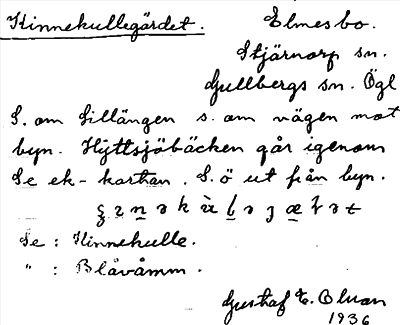 Kinnekullegärdet.
Elmesbo.
Stjärnorp sn.
Gullbergs sn. Ögl
S. om Sillängen s. om vägen mot
byn. Hyttsjöbäcken går igenom
Se ek-kartan. S.ö ut från byn.
Se: Kinnekulle.
" : Blåvåmm.
Gustaf E.
1936